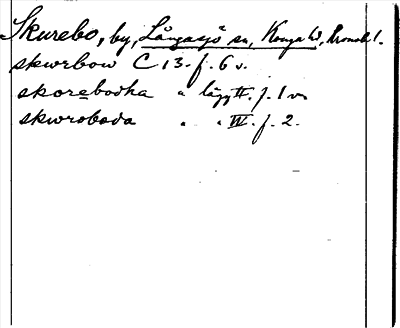 Skurebo, by, Långasjö sn, Konga hd, Kronob l.
skwrbow C 13. f. 6 v.
skorebodha " lägg II. f. 1 v.
skwroboda " " III. f. 2.